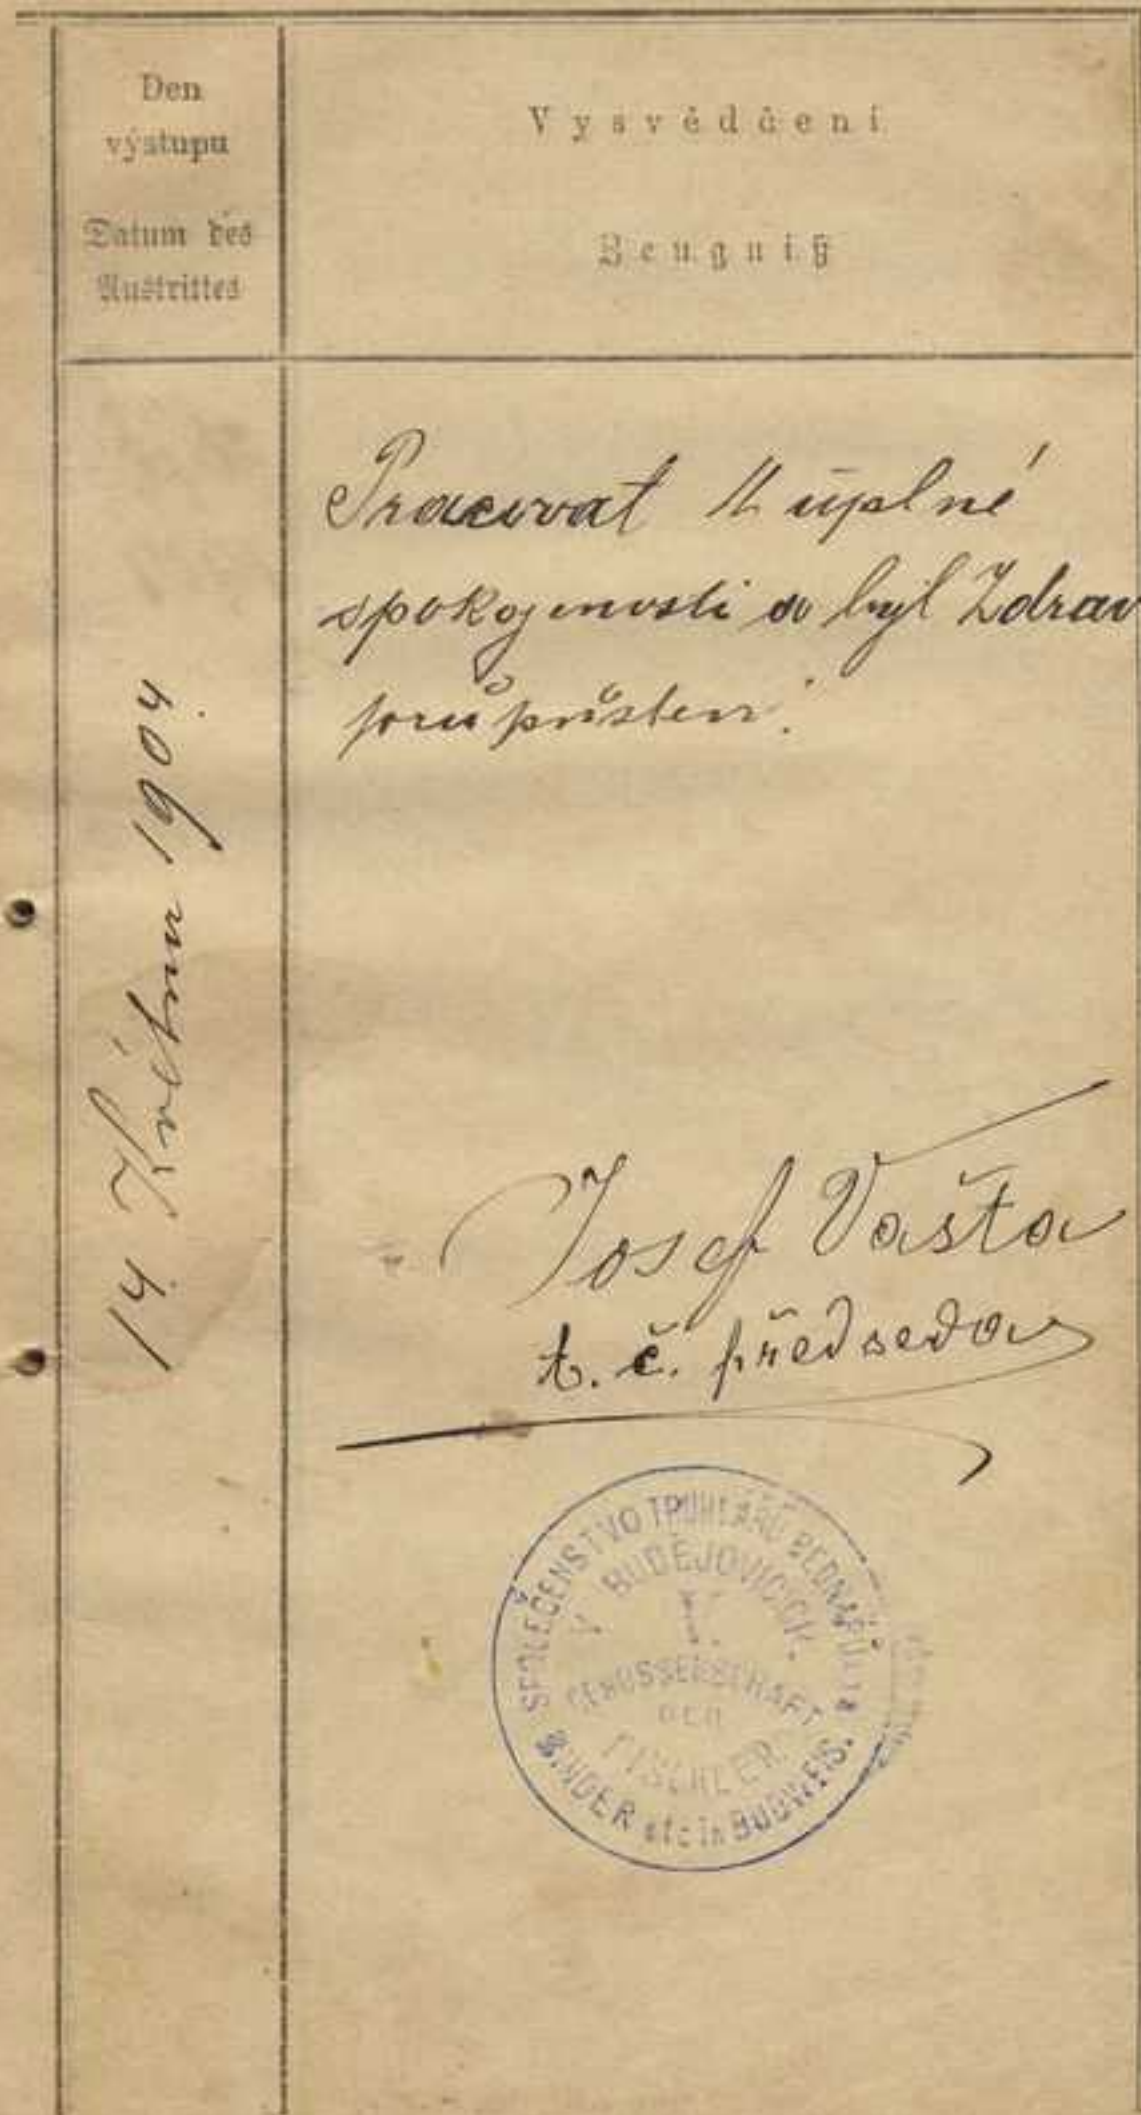 Den
výstupu
Datum des
Austrittes
Vysvědčení
Zeugniß
14. Květnu 1904.
Pracoval K úplné
spokojenosti a byl Zdrav
propušten.
Josef Vašta
t. č. předseda
SPOLEČENSTVO TRUHLÁŘŮ BEDNÁŘŮ
V BUDĚJOVICÍCH.
I.
GENOSSENSCHAFT
DER
TISCHLER
BINDER etc in BUDWEIS.